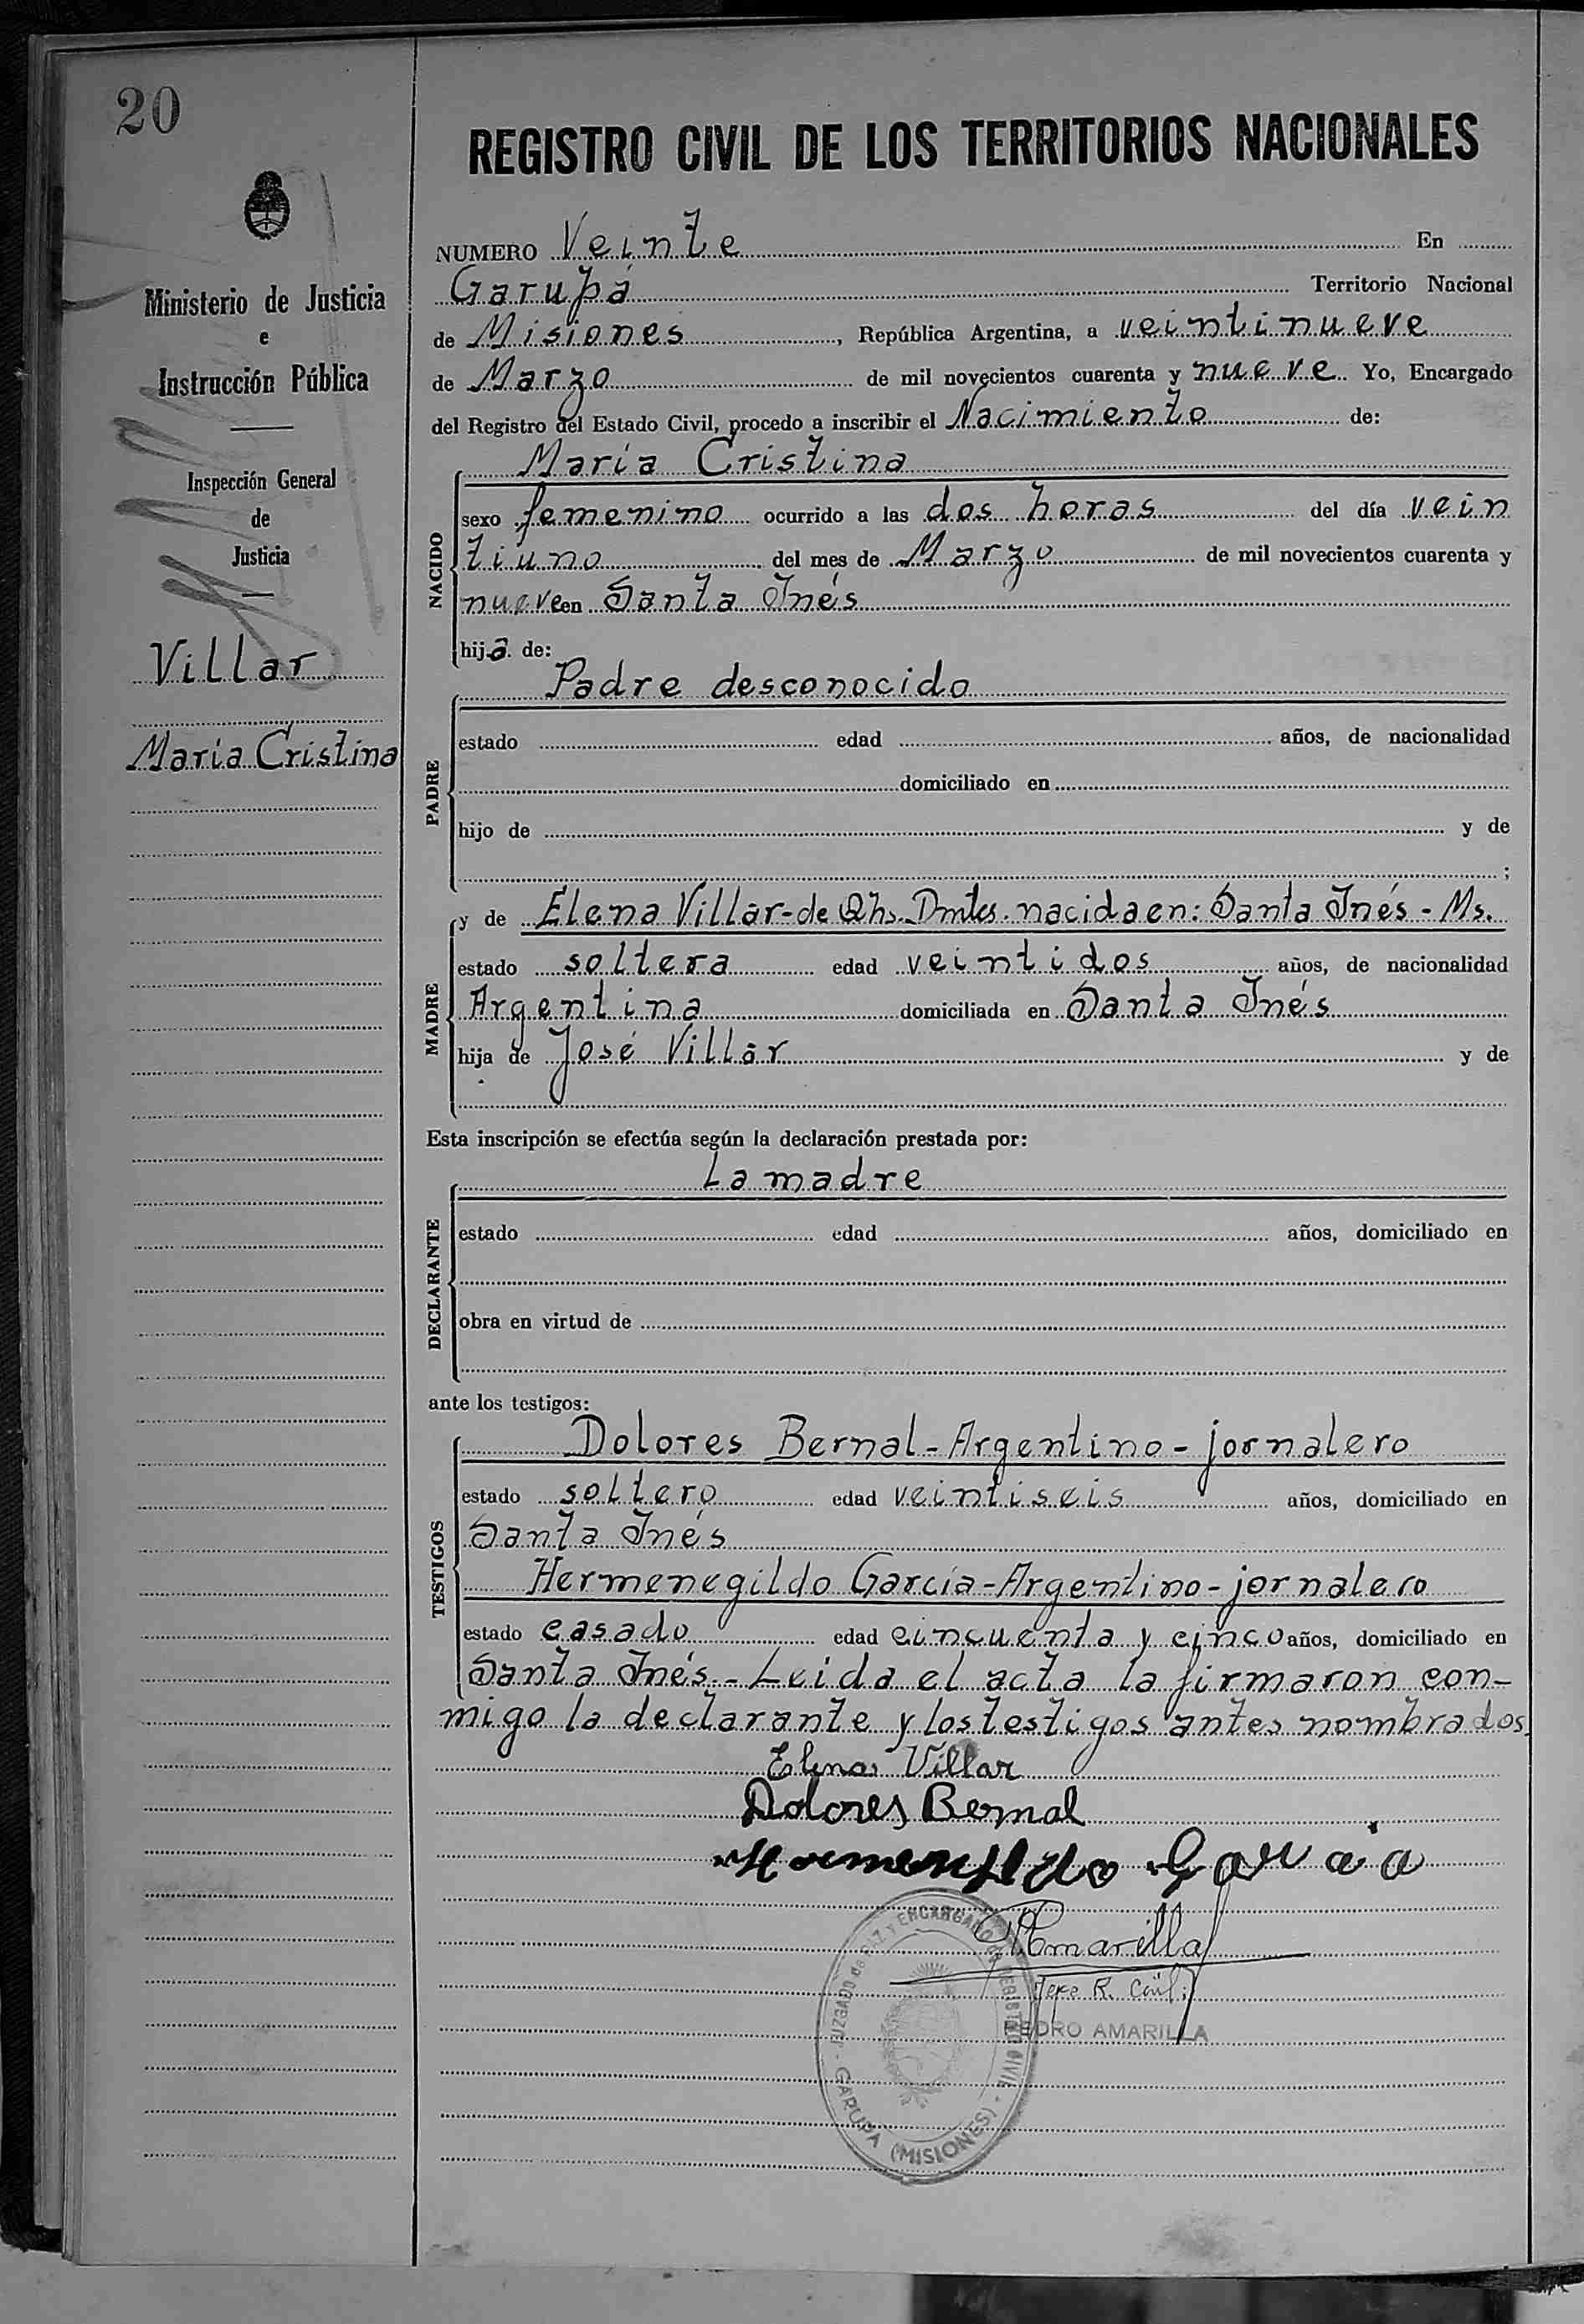 20
Ministerio de Justicia
e
Instrucción Pública
Inspección General
de
Justicia
Villar
María Cristina
REGISTRO CIVIL DE LOS TERRITORIOS NACIONALES
NUMERO Veinte En
Garupá Territorio Nacional
de Misiones, República Argentina, a veintinueve
de Marzo de mil novecientos cuarenta y nueve Yo, Encargado
del Registro del Estado Civil, procedo a inscribir el Nacimiento de:
María Cristina
NACIDO
sexo femenino ocurrido a las dos horas del día vein
tiuno del mes de Marzo de mil novecientos cuarenta y
nueve en Santa Inés
hija de:
Padre desconocido
PADRE
estado edad años, de nacionalidad
domiciliado en
hijo de y de
;
y de Elena Villar-de Qhs. Dmtes. nacida en: Santa Inés - Ms.
MADRE
estado soltera edad veintidos años, de nacionalidad
Argentina domiciliada en Santa Inés
hija de José Villar y de
Esta inscripción se efectúa según la declaración prestada por:
La madre
DECLARANTE
estado edad años, domiciliado en
obra en virtud de
ante los testigos:
Dolores Bernal-Argentino-jornalero
TESTIGOS
estado soltero edad veintiseis años, domiciliado en
Santa Inés
Hermenegildo García-Argentino-jornalero
estado casado edad cincuenta y cinco años, domiciliado en
Santa Inés.- Leida el acta la firmaron con-
migo la declarante y los testigos antes nombrados.
Elena Villar
Dolores Bernal
Garcia
PAmarilla
Jefe R. Civil
PEDRO AMARILLA
JUZGADO de PAZ Y ENCARGADO DE REGISTRO CIVIL
- GARUPA (MISIONES) -